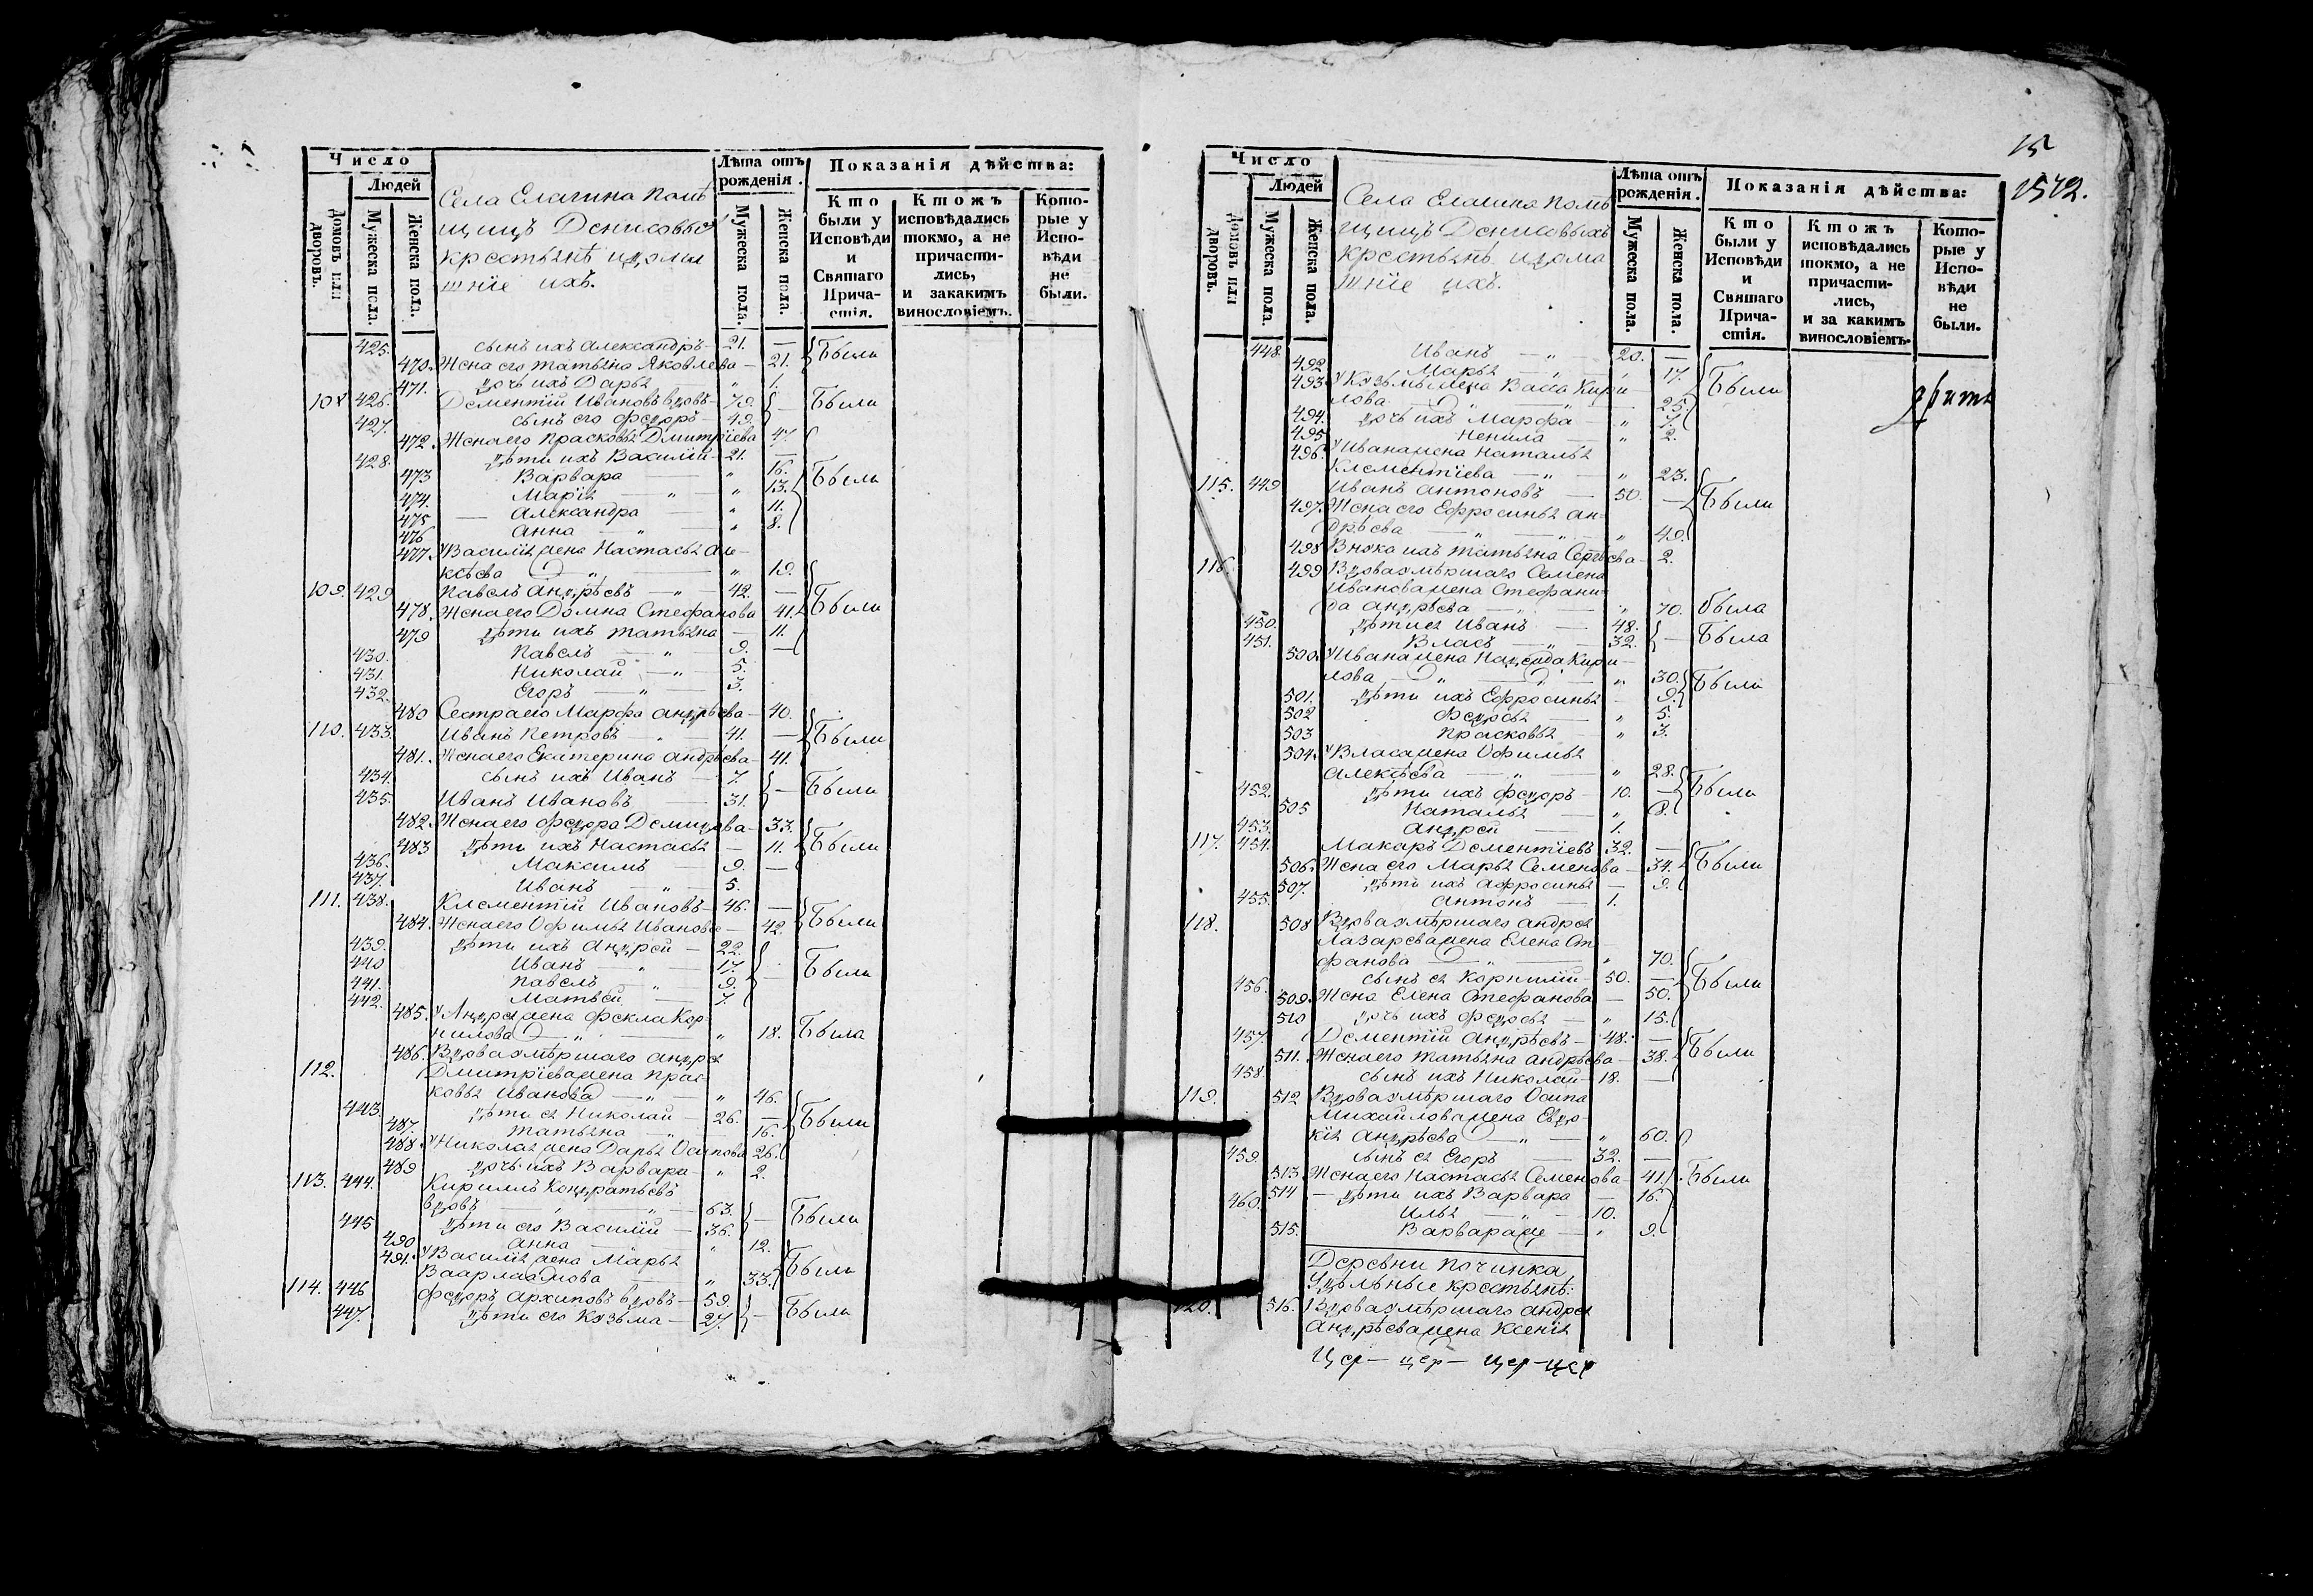 Число
Людей
Домовъ или дворовъ.
Мужеска пола.
Женска пола.
Села Елагина помѣ
щицъ Денисовыхъ
крестьянѣ идома
шнiе ихъ.
Лѣта отъ рожденiя.
Мужеска пола.
Женска пола.
Показанiя дѣйства:
Кто были у Исповѣди и Святаго Прича-стiя.
Ктожъ исповѣдались токмо, а не причасти-лись, и закакимъ винословiемъ.
Кото-рые у Испо-вѣди не были.
425. сынъ ихъ Александръ — 21. — Были
470. Жена его Татьяна Яковлева — 21.
471. дочь ихъ Дарья „ 1.
108 426. Дементiй Ивановъ вдовъ — 70. — Были
427. сынъ его Федоръ — 49.
472. Жена его Прасковья Дмитрiева 47.
428. дѣти ихъ Василiй — 21. —
473 Варвара — „ 16. Были
474. Марiя — „ — „ 13.
475 — Александра — „ 11.
476 Анна — „ „ 8.
477. Василiя жена Настасья Але-
ксѣева — „ — „ 19.
109. 429 Павелъ Андрѣевъ — „ — 42. —
478. Жена его Домна Стефанова 41. Были
479 дѣти ихъ Татьяна — 11.
430. Павелъ — „ — 9. —
431. Николай — „ — 5.
432. Егоръ — „ — 3.
480 Сестра его Марфа Андрѣева — 40.
110. 433. Иванъ Петровъ — „ — 41. — Были
481. Жена его Екатерина Андрѣева — 41.
434. сынъ ихъ Иванъ — 7. — Были
435. Иванъ Ивановъ — 31.
482. Жена его Федора Демидова — 33.
483 дѣти ихъ Настасья — 11. Были
436. Максимъ 9. —
437. Иванъ — „ — 5.
111. 438. Клементiй Ивановъ — 46. —
484. Жена его Офимья Иванова — 42. Были
439. дѣти ихъ Андрей — 22.
440 Иванъ — „ — 17. Были
441. Павелъ — „ — 9. —
442. Матвей — 7.
485. Андрея жена Фекла Кор-
нилова — „ — „ 18. Была
486. Вдова умѣршаго Андрея
112. Дмитрiева жена Прас-
ковья Иванова — „ — „ 46.
443. дѣти ея Николай — 26. — Были
487. Татьяна — „ — 16.
488. Николая жена Дарья Осипова 26.
489 дочь ихъ Варвара — „ 2.
113. 444. Кирилъ Кондратьевъ
вдовъ — „ — „ — 63.
445 дѣти его Василiй — 36. — Были
490 Анна — „ 12.
491. Василiя жена Марья
Ваарлаамова — „ 33. Были
114. 446 Федоръ Архиповъ вдовъ — 59.
447. дѣти его Козьма — 27. — Были
15
1572.
Число
Людей
Домовъ или дворовъ.
Мужеска пола.
Женска пола.
Села Елагина помѣ
щицъ Денисовыхъ
крестьянѣ идома
шнiе ихъ.
Лѣта отъ рожденiя.
Мужеска пола.
Женска пола.
Показанiя дѣйства:
Кто были у Исповѣди и Святаго Прича-стiя.
Ктожъ исповѣдались токмо, а не причасти-лись, и за какимъ винословiемъ.
Кото-рые у Испо-вѣди не были.
448. Иванъ — „ — 20. —
492 Марья — „ — 17.
493. Козьмы жена Васса Кири- Были
лова — „ — „ — 25.
494. дочь ихъ Марфа — „ 7.
495 Ненила — „ 2.
496. Ивана жена Наталья
Клементiева — „ — „ 23.
115. 449 Иванъ Антоновъ — 50. — Были
497. Жена его Ефросинья Ан-
дрѣева — „ — „ „ 49.
498 Внука ихъ Татьяна Сергѣева — 2.
116. 499 Вдова умѣршаго Семена
Иванова жена Стефани-
да Андрѣева — „ — „ 70. была
450. дѣти ея Иванъ — 48.
451. Власъ — „ — 32. — Была
500. Ивана жена Надежда Кири-
лова — „ — „ — „ 30. Были
501. дѣти ихъ Ефросинья — 9.
502 Федосья — „ 5.
503 Прасковья — „ 3.
504. Власа жена Офимья
Алексѣева — „ — „ 28.
452. дѣти ихъ Федоръ — 10. — Были
505 Наталья — „ 8.
453. Андрей — 1.
117. 454. Макаръ Дементiевъ 32. —
506. Жена его Марья Семенова — 34. Были
507. дѣти ихъ Афросинья — 9.
455. Антонъ — 1.
118. 508 Вдова умѣршаго Андрея
Лазарева жена Елена Сте-
фанова — „ — „ 70.
456. сынъ ея Корнилiй — 50. — Были
509. Жена Елена Стефанова — 50.
510 дочь ихъ Федосья — „ 15.
457. Дементiй Андрѣевъ — 48. —
511. Жена его Татьяна Андрѣева — 38. Были
458. сынъ ихъ Николай — 18. —
119. 512 Вдова умѣршаго Осипа
Михайлова жена Евдо-
кiя Андрѣева — „ — „ 60.
459. сынъ ея Егоръ — 32. —
513. Жена его Настасья Семенова — 41. Были
514 — дѣти ихъ Варвара — 16.
460. Илья — „ — 10.
515. Варвара же — „ 9.
Деревни Починка
Удѣльные крестьянѣ:
120. 516. Вдова умѣршаго Андрея
Андрѣева жена Ксенiя
Цер — цер — цер — цер